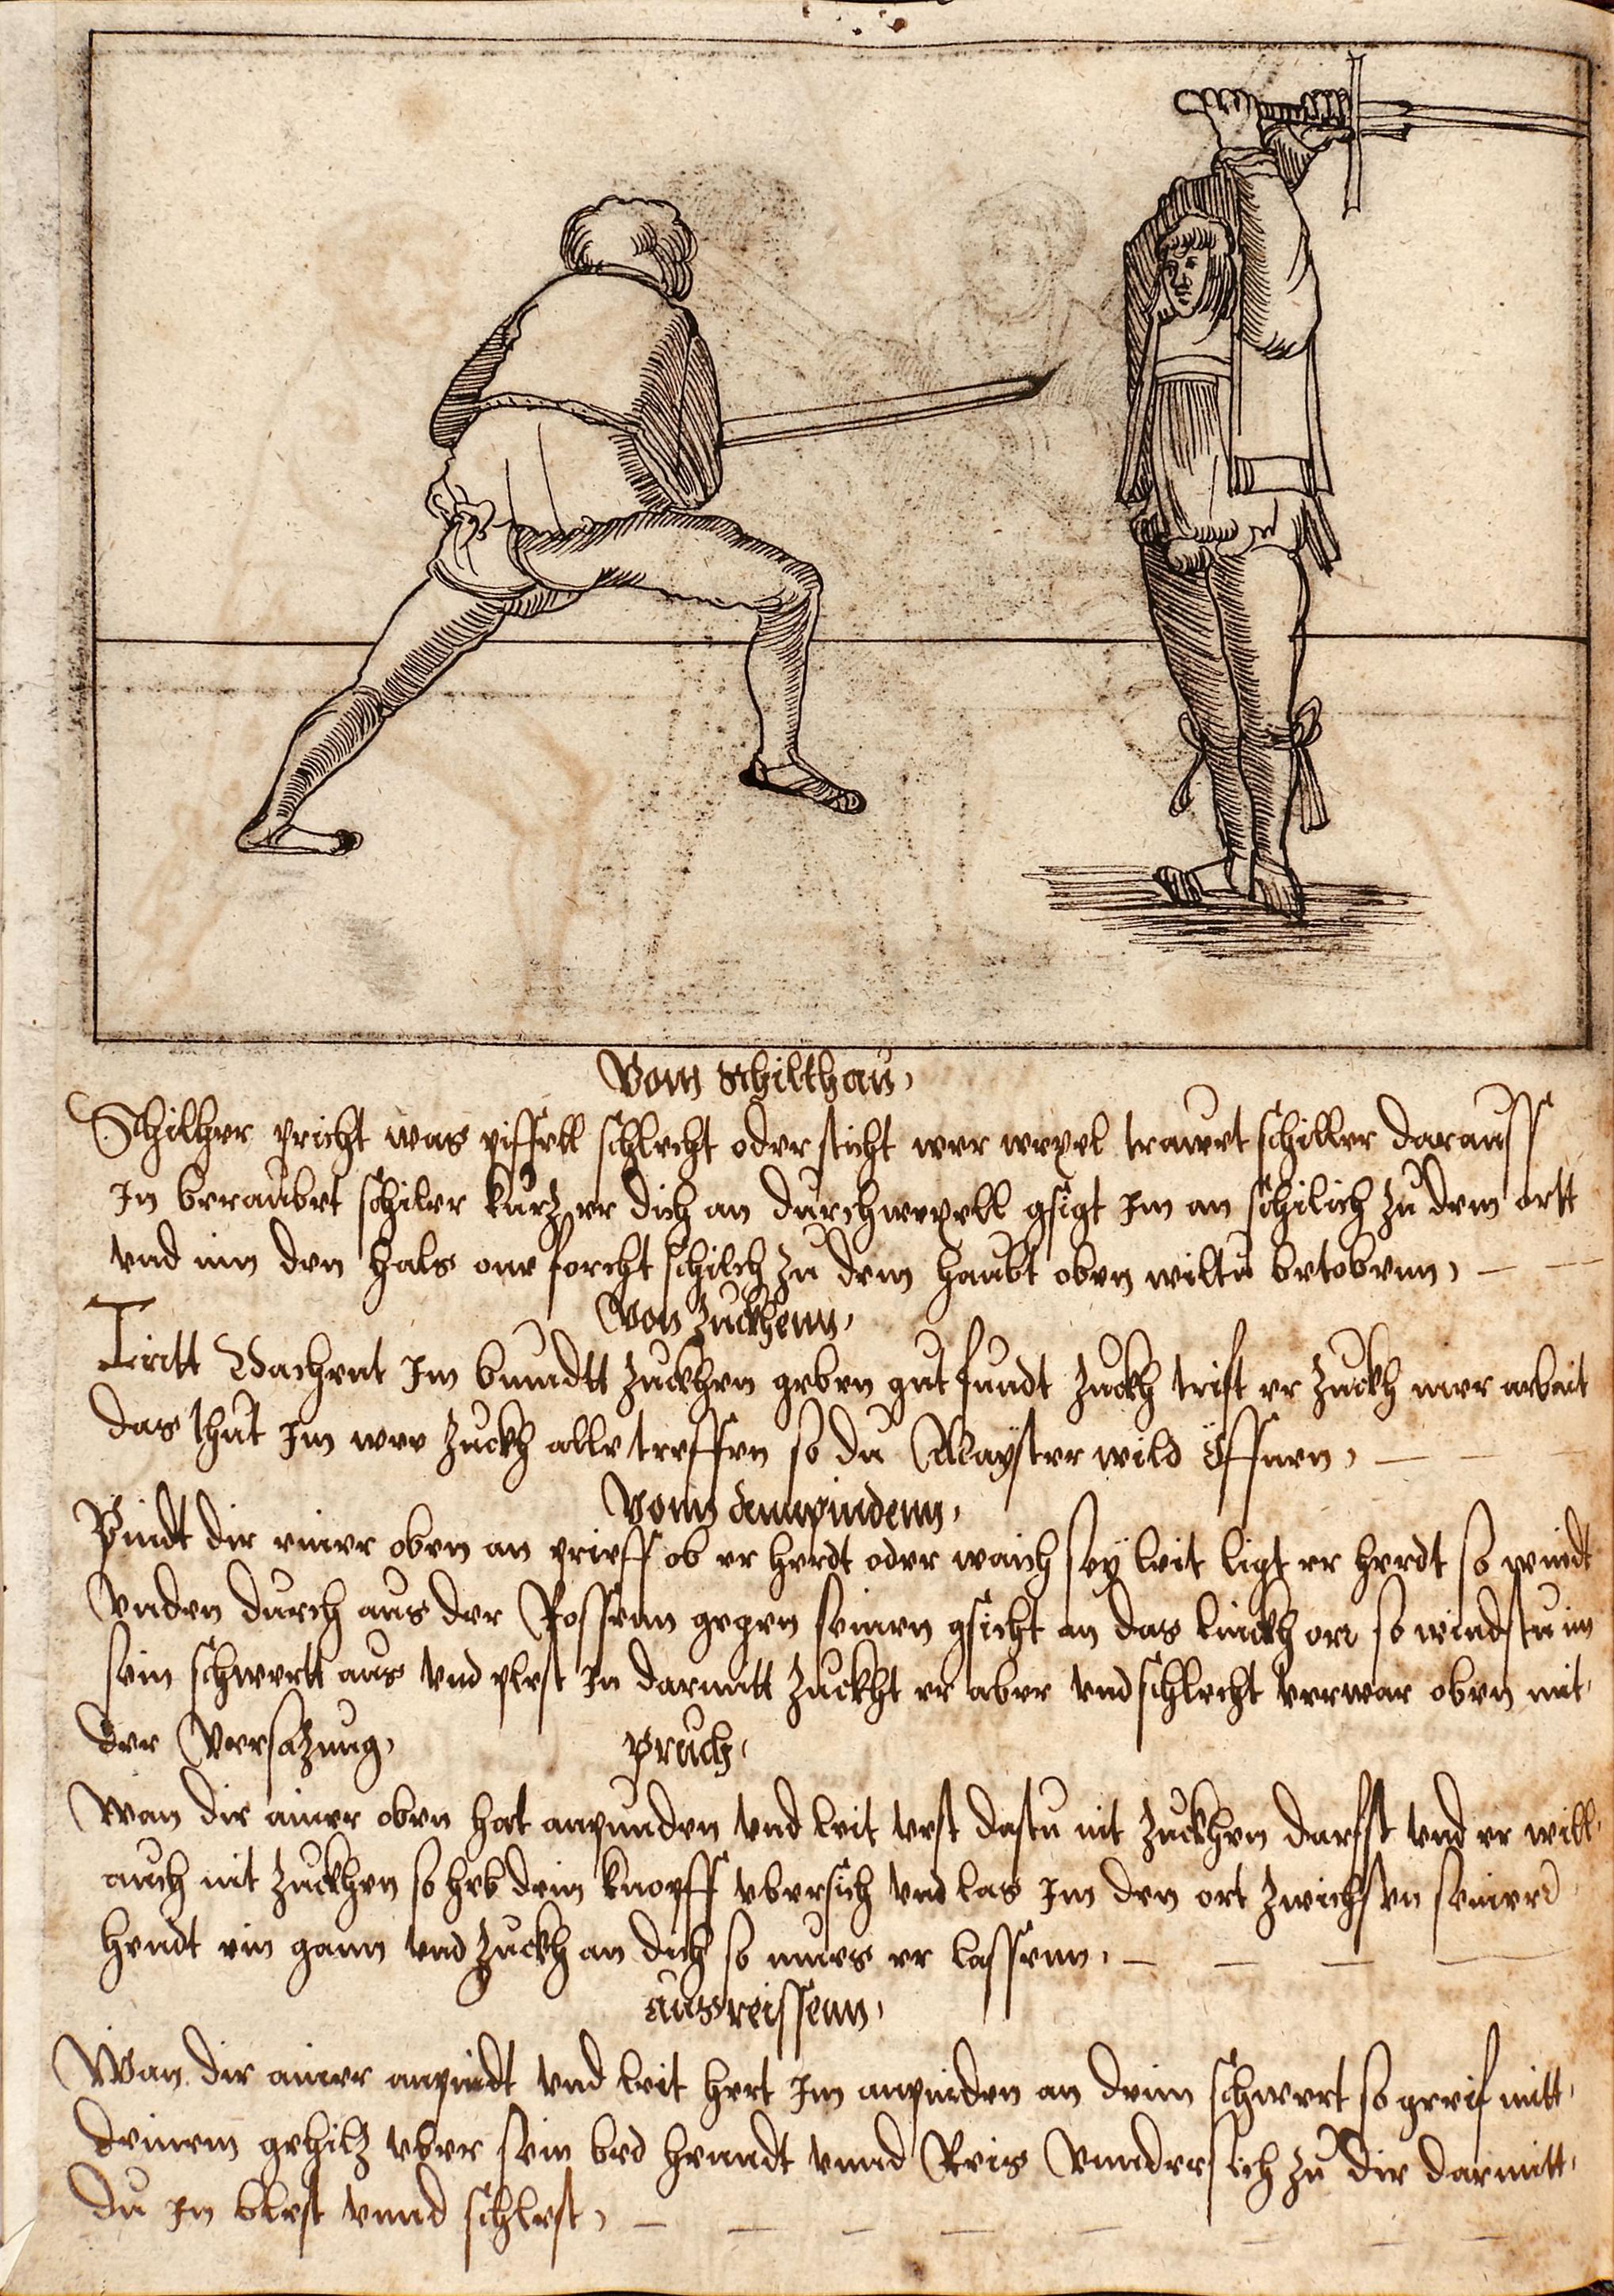 Vom schilthau,
Schilher pricht was piffell schlecht oder sticht wer wexel trawet schiller darauff
In beraubet schiler kurz er dich an durchwexell gsigt Im an schilich zu dem ortt
vnd nim den hals one forcht schilch zu dem haubt oben wiltu betobenn,
Von Zuckhenn,
Tritt Nachent Im bundtt zuckhen geben gut fundt zuckh trift er zuckh mer arbait
das thut Im wee zuckh alle treffen so du Mayster wild Effnen,
Vom Anwindenn,
Pindt dir einer oben an prieff ob er herdt oder waich sey leit ligt er herdt so windt
vnden durch aus der Possenn gegen seinen gsicht an das linckh ore so windstu im
sein schwertt aus vnd plest In darmitt zuckht er aber vnd schlecht verwar oben mit
der Versazung,
pruch,
Wan dir ainer oben hat anpunden vnd leit vest dastu nit zuckhen darfst vnd er will
auch nit zuckhen so heb dein knopff vbersich vnd las Im den ort zwichsen seinen
hendt ein gann vnd zuckh an dich so mues er lassenn,
Ausreissenn,
Wan dir ainer anpindt vnd leit hert Im anpinden an deim schwert so greif mitt
deinem gehilz vber sein bed henndt vnnd Reis vnndersich zu dir darmitt
du In blest vnnd schlest,